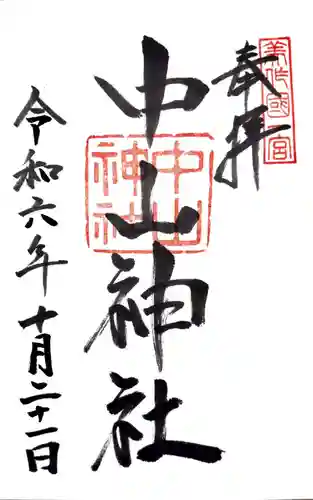 美作國一宮
奉拝
中山神社
中山神社
令和六年十月二十一日